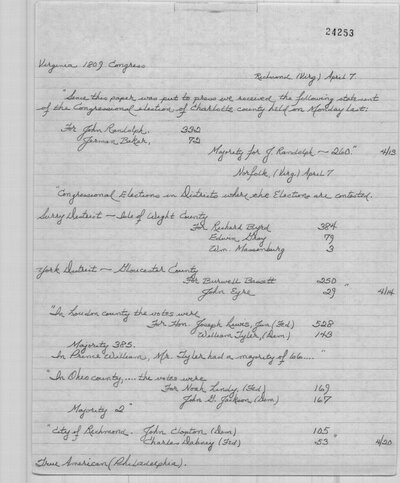 24253
Virginia 1809 Congress
Richmond (Virg) April 7
"Since this paper was put to press we received the following statement
of the Congressional election of Charlotte county held on Monday last:
For John Randolph, 332
Jerman Baker, 72
Majority for J Randolph — 260" 4/13
Norfolk, (Virg) April 7
"Congressional Elections in Districts where the Elections are contested.
Surry District — Isle of Wight County
For Richard Byrd 384
Edwin Gray 79
Wm. Massenburg 3
York District — Gloucester County
For Burwell Bassett 250
John Eyre 29 " 4/14
"In Loudon county the votes were
For Hon Joseph Lewis, Jun (Fed) 528
William Tyler, (Dem) 143
Majority 385.
In Prince William, Mr. Tyler had a majority of 66...."
"In Ohio county,.... the votes were
For Noah Lindly, (Fed) 169
John G. Jackson (Dem) 167
Majority 2"
"City of Richmond. John Clopton (Dem) 105
Charles Dabney (Fed) 53 " 4/20
True American (Philadelphia).